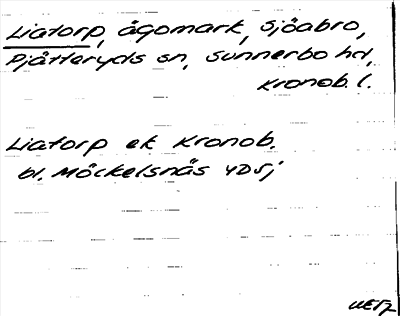 Liatorp, ägomark, Sjöabro,
Pjätteryds sn, Sunnerbo hd,
Kronob. l.
Liatorp ek Kronob.
bl. Möckelsnäs 4D5j